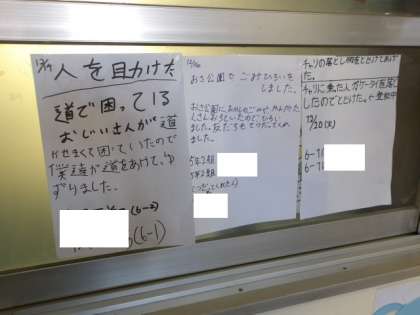 12/19
人を助けた
道で困っている
おじいさんが道
がせまくて困っていたので
僕達が道をあけて、ゆ
ずりました。
(6-2)
(6-1)
12/20
おさ公園で ごみひろいを
しました。
おさ公園に
くさんおちていたのでひろい
ました。友だちもてつだってくれ
ました。
5年2組
5年2組
チャリの落とし物をとどけてあげ
た。
チャリに乗った人がケータイを落と
したのでとどけた。
12/20(火)
6-1
6-1